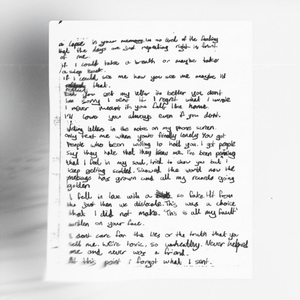 a lapse in your memory is no kind of the feeling
that the days are just repeating right in front
of me.
If I could take a breath or maybe take
a step back.
If I could see me how you see me maybe I'd
that.
Did you get my letter its better you don't
too sorry I sent it I regret what I wrote
I never meant it you didn't like home.
I'll love you always even if you don't.
Writing letters in the notes on my phone when
only text me when you're really lonely You got
people who been willing to hold you. I got people
say they hate that they know me. I've been
that I feel in my soul, tried to show you but I
keep getting Should the word now the
message has grown old all my records going
golden
I fell in love with a so fake I'll from
the just than we dislocate. This was a choice
that I did not make. 'This is all my fault'
written on your face.
I dont care for the lies or the truth that you
tell me. We're toxic, so unhealthy. Never helped
me and never was a friend.
At this point I forget what I sent.